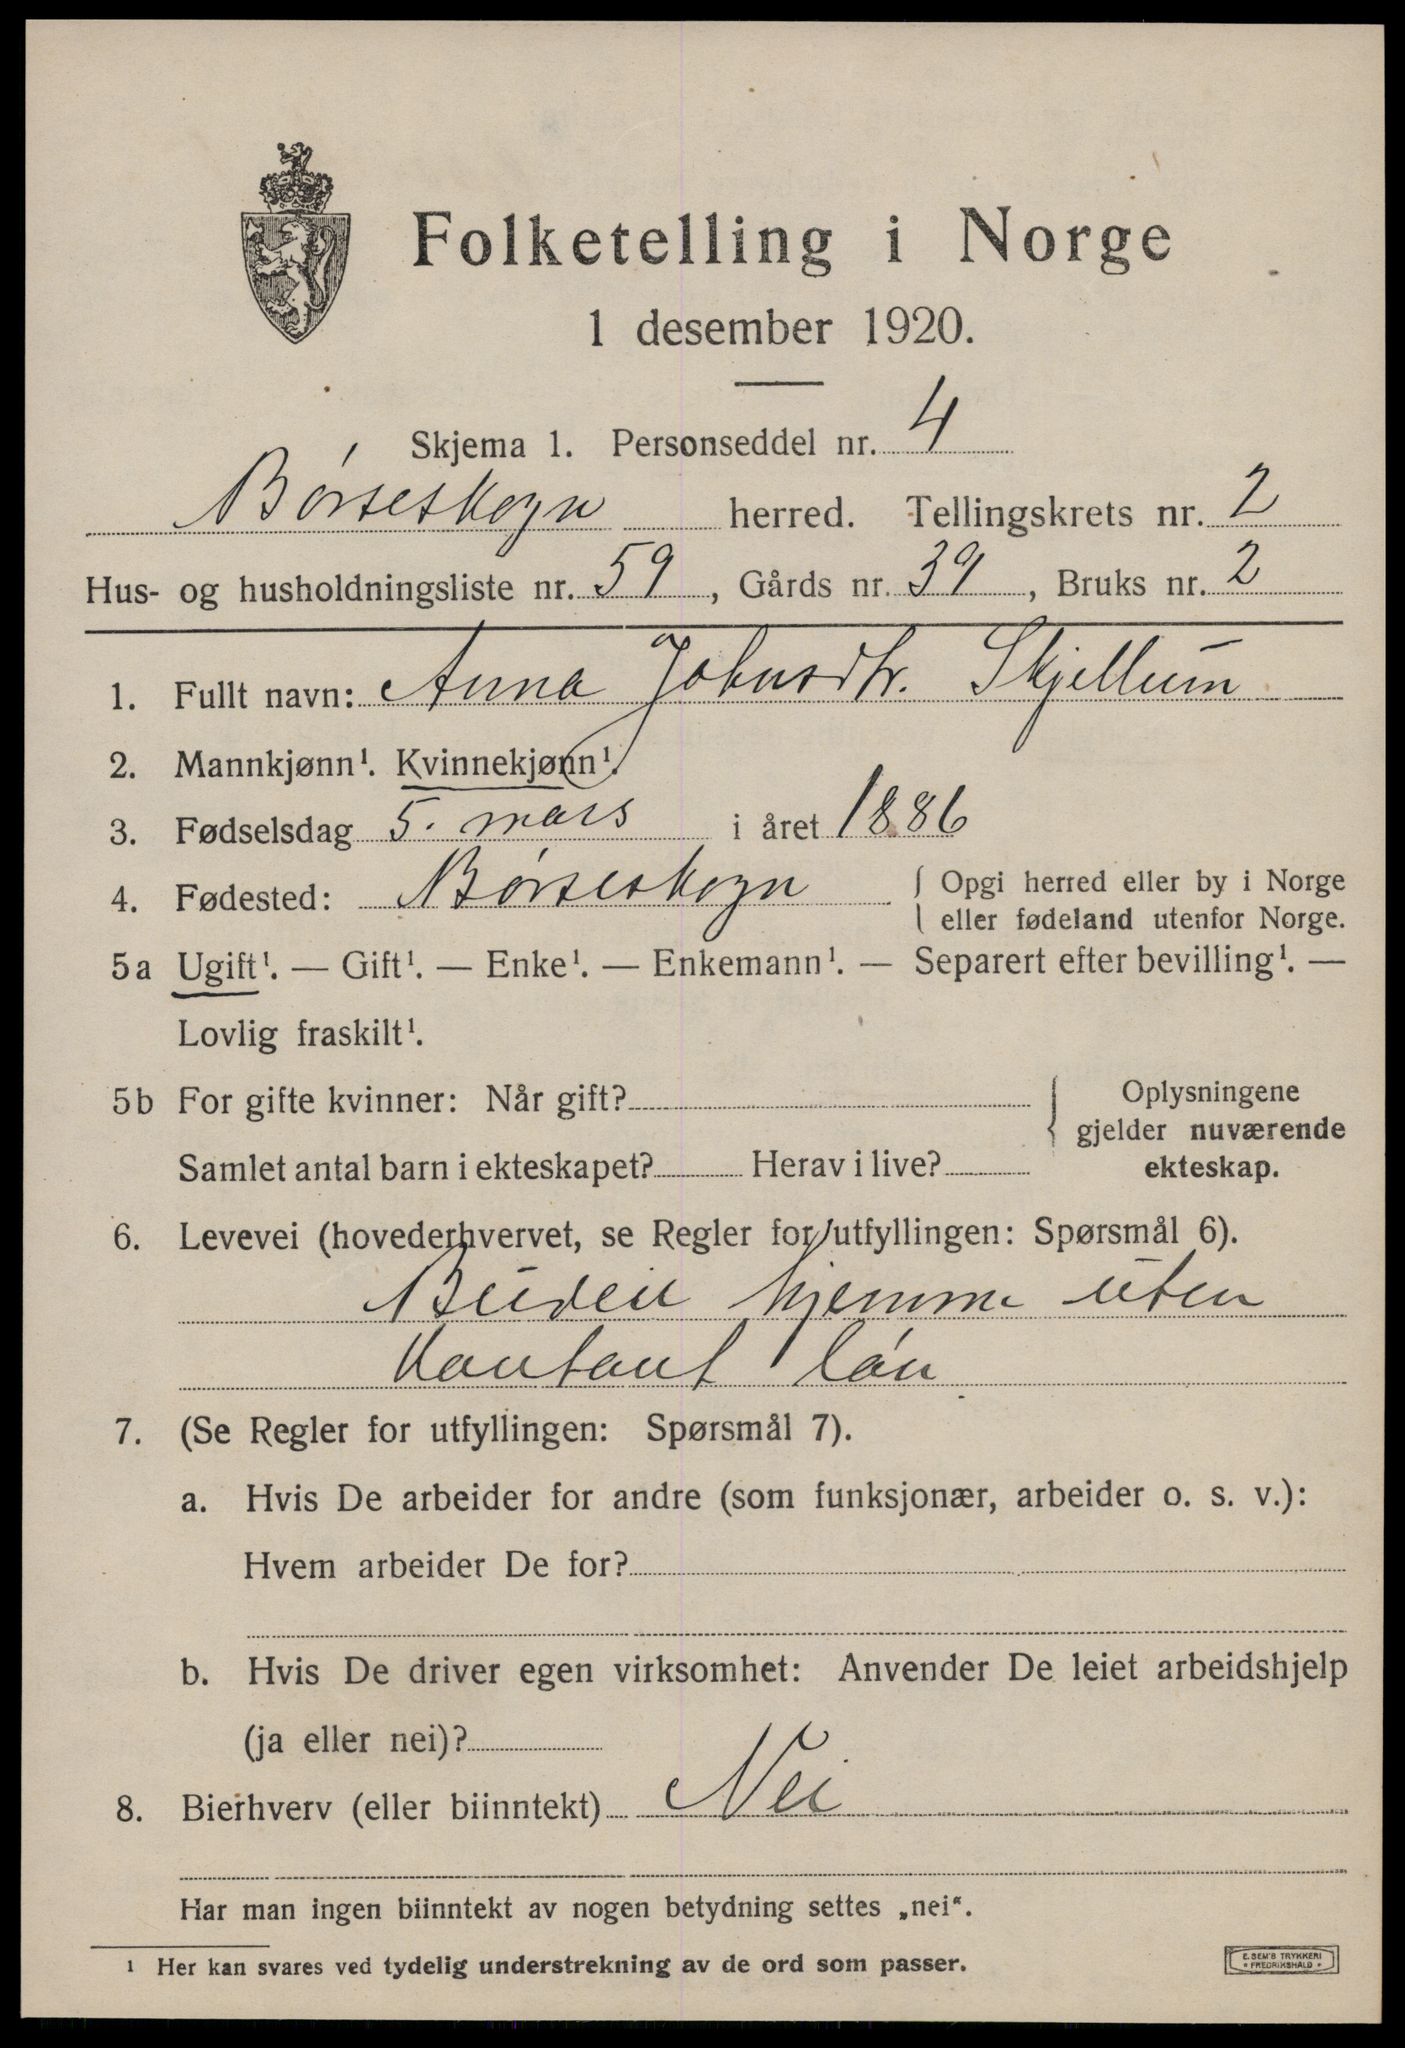 Folketelling i Norge
1 desember 1920.
Skjema 1. Personseddel nr. 4
Børseskogn herred. Tellingskrets nr. 2
Hus- og husholdningsliste nr. 59, Gårds nr. 39, Bruks nr. 2
1. Fullt navn: Anna Johnsdtr. Skjellum
2. Mannkjønn¹. Kvinnekjønn¹.
3. Fødselsdag 5. mars i året 1886
4. Fødested: Børseskogn { Opgi herred eller by i Norge
eller fødeland utenfor Norge.
5a Ugift¹. — Gift¹. — Enke¹. — Enkemann¹. — Separert efter bevilling¹. —
Lovlig fraskilt¹.
5b For gifte kvinner: Når gift? { Oplysningene
gjelder nuværende
Samlet antal barn i ekteskapet? Herav i live? ekteskap.
6. Levevei (hovederhvervet, se Regler for utfyllingen: Spørsmål 6).
Budeii hjemme uten
Kontant lón
7. (Se Regler for utfyllingen: Spørsmål 7).
a. Hvis De arbeider for andre (som funksjonær, arbeider o. s. v.):
Hvem arbeider De for?
b. Hvis De driver egen virksomhet: Anvender De leiet arbeidshjelp
(ja eller nei)?
8. Bierhverv (eller biinntekt) Nei
Har man ingen biinntekt av nogen betydning settes „nei“.
¹ Her kan svares ved tydelig understrekning av de ord som passer.
E. SEM'S TRYKKERI
• FREDRIKSHALD •